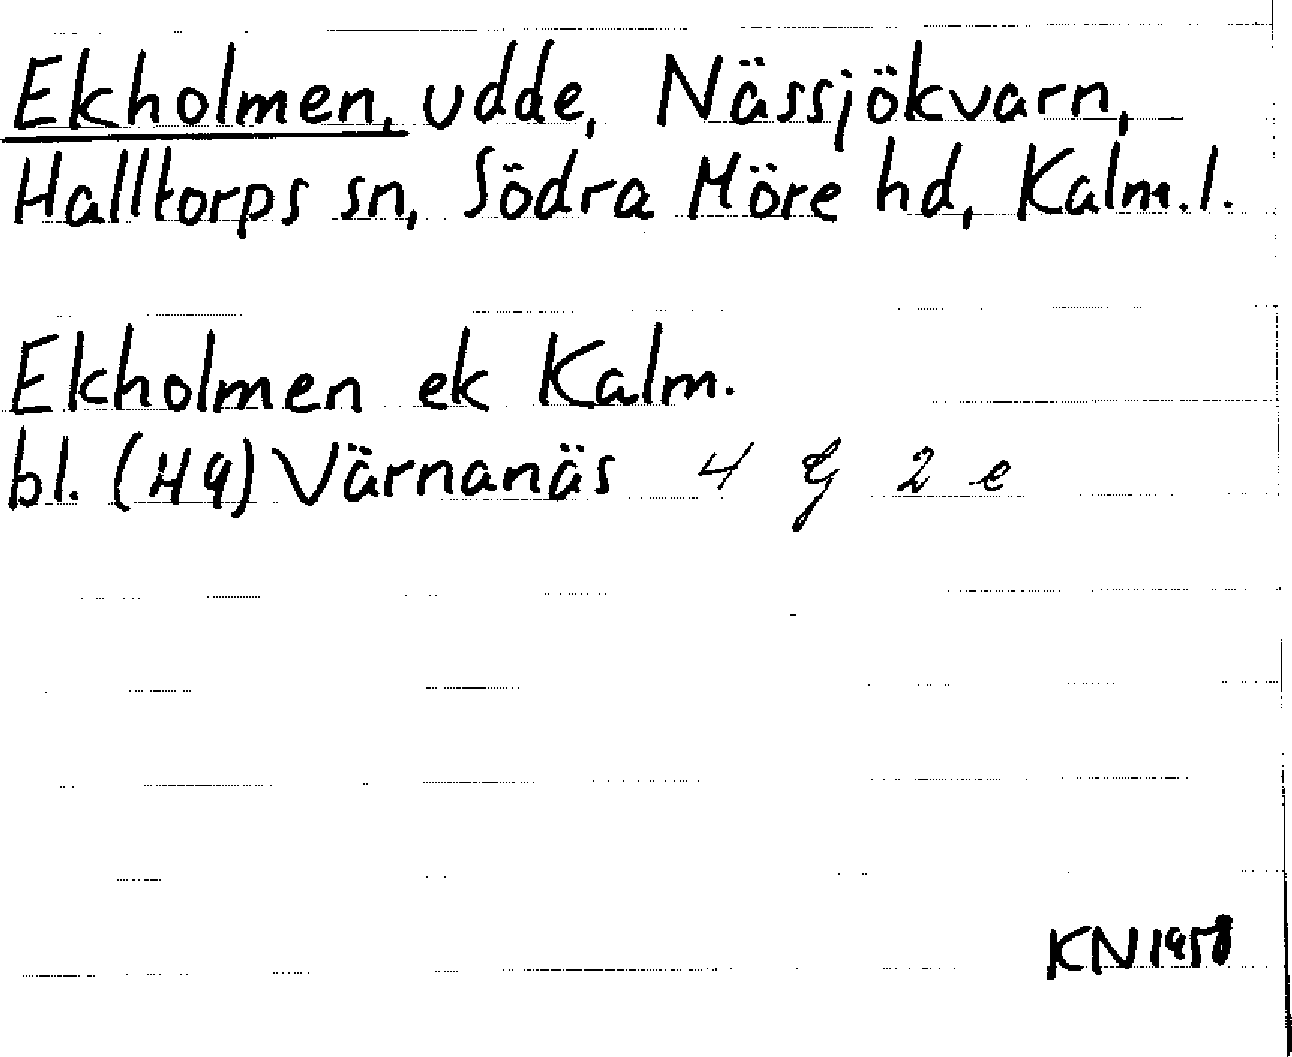 Ekholmen, udde, Nässjökvarn,
Halltorps sn, Södra Möre hd, Kalm. l.
Ekholmen ek Kalm.
bl. (49) Värnanäs 4 G 2 e
KN 1958